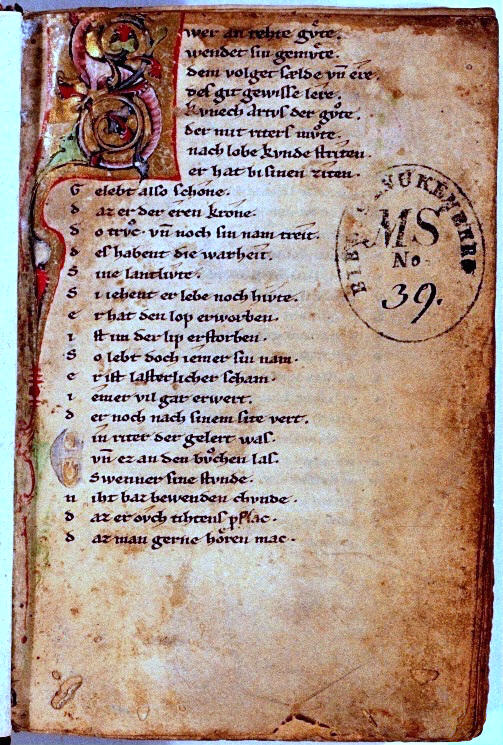 Swer an rehte gvͦte.
wendet sin gemvͤte.
dem volget sælde vn̄ ere.
des git gewisse lere.
kvnech Artvs der gvͦte.
der mit riters mvͦte.
nach lobe kvnde striten.
er hat bi sinen ziten.
G elebt also schone.
d az er der eren krone.
d o trvͦc. vn̄ noch sin nam treit.
d es habent die warheit.
S ine lantlivte.
S i iehent er lebe noch hivte.
e r hat den lop erworben.
i st im der lip erstorben.
S o lebt doch iemer sin nam.
e r ist lasterlicher scham.
i emer vil gar erwert.
d er noch nach sinem site vert.
in riter der gelert was.
vn̄ ez an den bvͦchen las.
Swenner sine stvnde.
n iht baz bewenden chvnde.
d az er ovch tihtens pflac.
d az man gerne horen mac.
MS
No.
39.